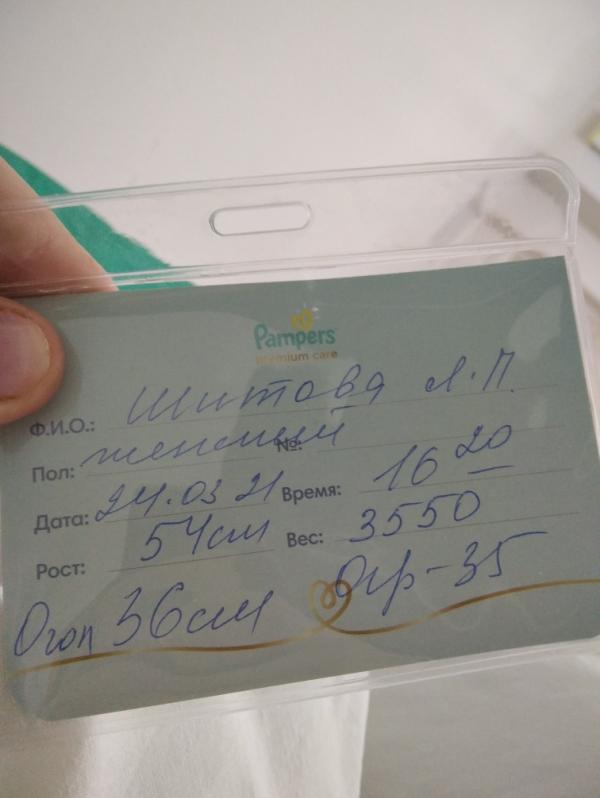 Pampers
premium care
Ф.И.О.: Шитова Л.П.
Пол: женский №:
Дата: 24.03 21 Время: 16 20
Рост: 54см Вес: 3550
Огол 36см Огр-35